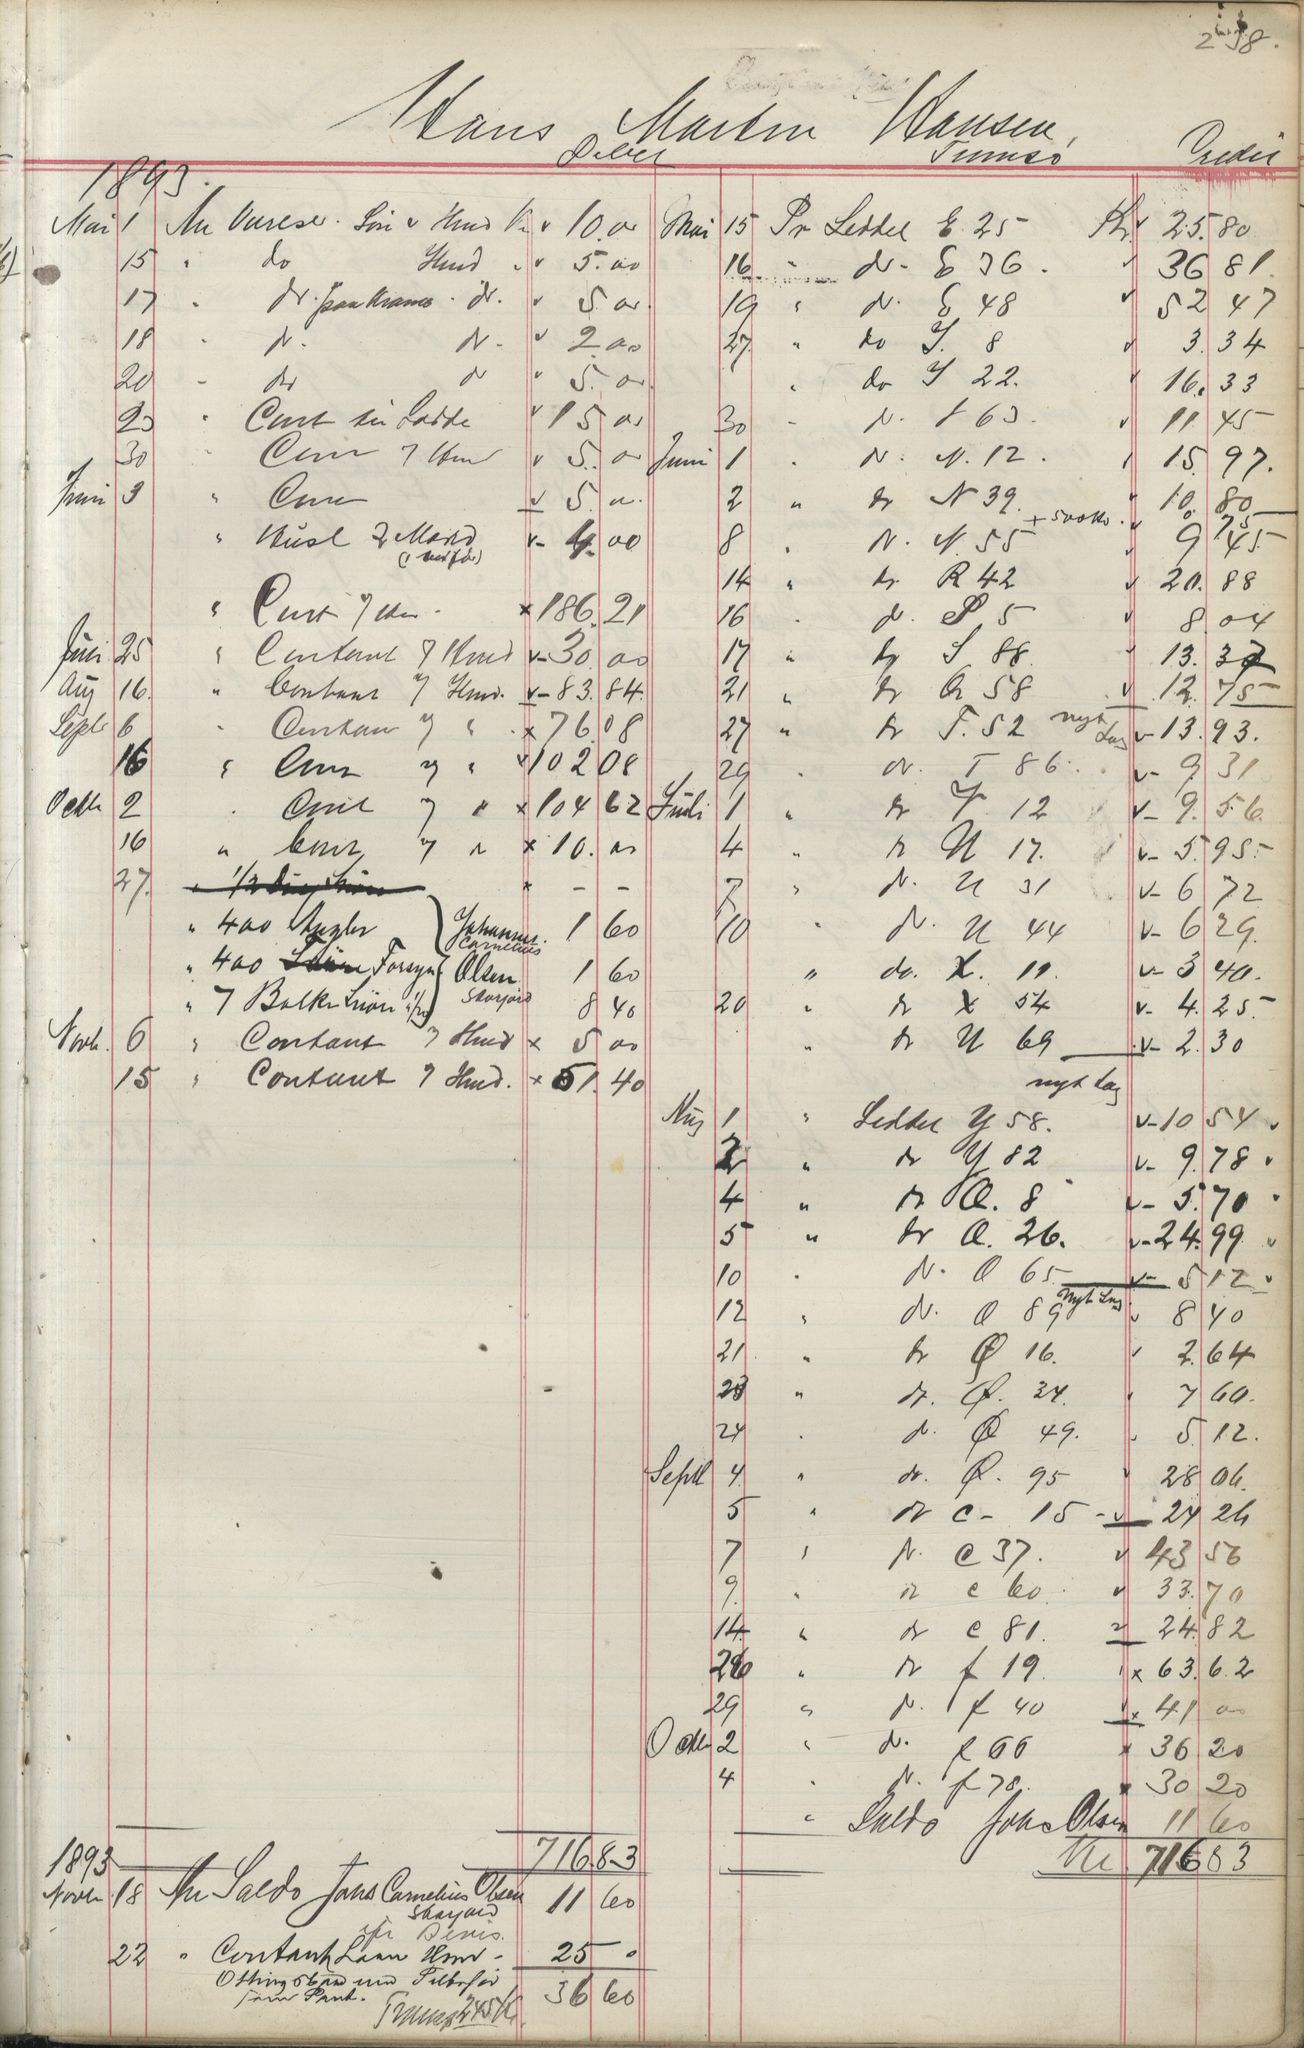 238.
Hans Martin Hansen
Debet Tromsö Credit
1893.
Mai 1 An Varese. v 10.00
15 " do Hmd " v 5.00
17 " do. do. v 5.00
18 " do. do. v 2.00
20 " do do v 5.00
23 " Cont v 15 00
30 " Cont 7 Hmd v 5.00
Juni 3 " Cont v 5.00
" v- 4.00
" Cont 7 Hm. x 186.21
Juli 25 " Contant 7 Hmd v- 30.00
Aug 16. " Contant 7 Hmd. v- 83.84.
Septb 6 " Contant 7 " x 76.08
16 " Cont 7 " v 102 08
Octb 2 " Cont 7 " x 104 62
16 " Cont 7 " x 10.00
27. " 1/2 x - -
" 400 Angler Johannes 1 60
Cornelius
" 400 Forsyn Olsen 1 60
" 7 Balke Snöre Skarfjord 8 40
Novb. 6 " Contant 7 Hmd x 5 00
15 " Contant 7 Hmd. x 51.40
716.83
1893
Novb 18 An Saldo Johs Cornelius Olsen 11 60
22 " Contant Laan Hmd - 25 "
som Pant. 36 60
Mai 15 Pr Seddel E 25 Kr v 25.80
16 " do. E 36. v 36 81.
19 " do. E 48 v 52 47
27. " do 8 v 3.34
" do 22. v 16.33
30 " do. 63. v 11.45
Juni 1 " do. N. 12. 15.97.
2 " do N 39. v 10.80
8 " do. N. 55 v 9 45
14 " do R 42 v 20.88
16 " do. P 5 v 8.04
17 " do S 88. v 13.
21 " do 58 v 12.75
27 " do T. 52 nyt Lag v- 13.93.
29 " do. T 86. v- 9 31
Juli 1 " do 12 v- 9.56.
4 " do U 17. v- 5.95
7 " do. U 31 v- 6 72
10 " do. U 44 v- 6 29.
" do. X. 11. v- 3 40.
20 " do X 54 v- 4.25
" do U 69 v- 2.30
nyt Lag
Aug 1 " Seddel Y 58. v- 10 54 v
2 " do Y 82 v- 9.78 v
4 " do Q. 8 v- 5.70 v
5 " do Q. 26. v- 24.99 v
10 " do. Q 65 v- 5 12 v
12 " do. Q 89 Nyt Lag v 8 40
21 " do Ø 16. v 2.64
23 " do. Ø. 34. v 7 60.
24 " do. Ø 49. v 5.12.
Septb 4 " do. Ø. 95 v 28 06.
5 " do c - 15 - v 24 26
7 " do. c 37. v 43 56
9. " do c 60. v 33.70
14 " do c 81. v 24.82
26 " do f 19. x 63.62
29 " do. f 40 x 41 00
Octb 2 " do. f 66 x 36 20
4 " do. f 78. x 30 20
" Saldo Johs Olsen 11 60
Kr. 716 83